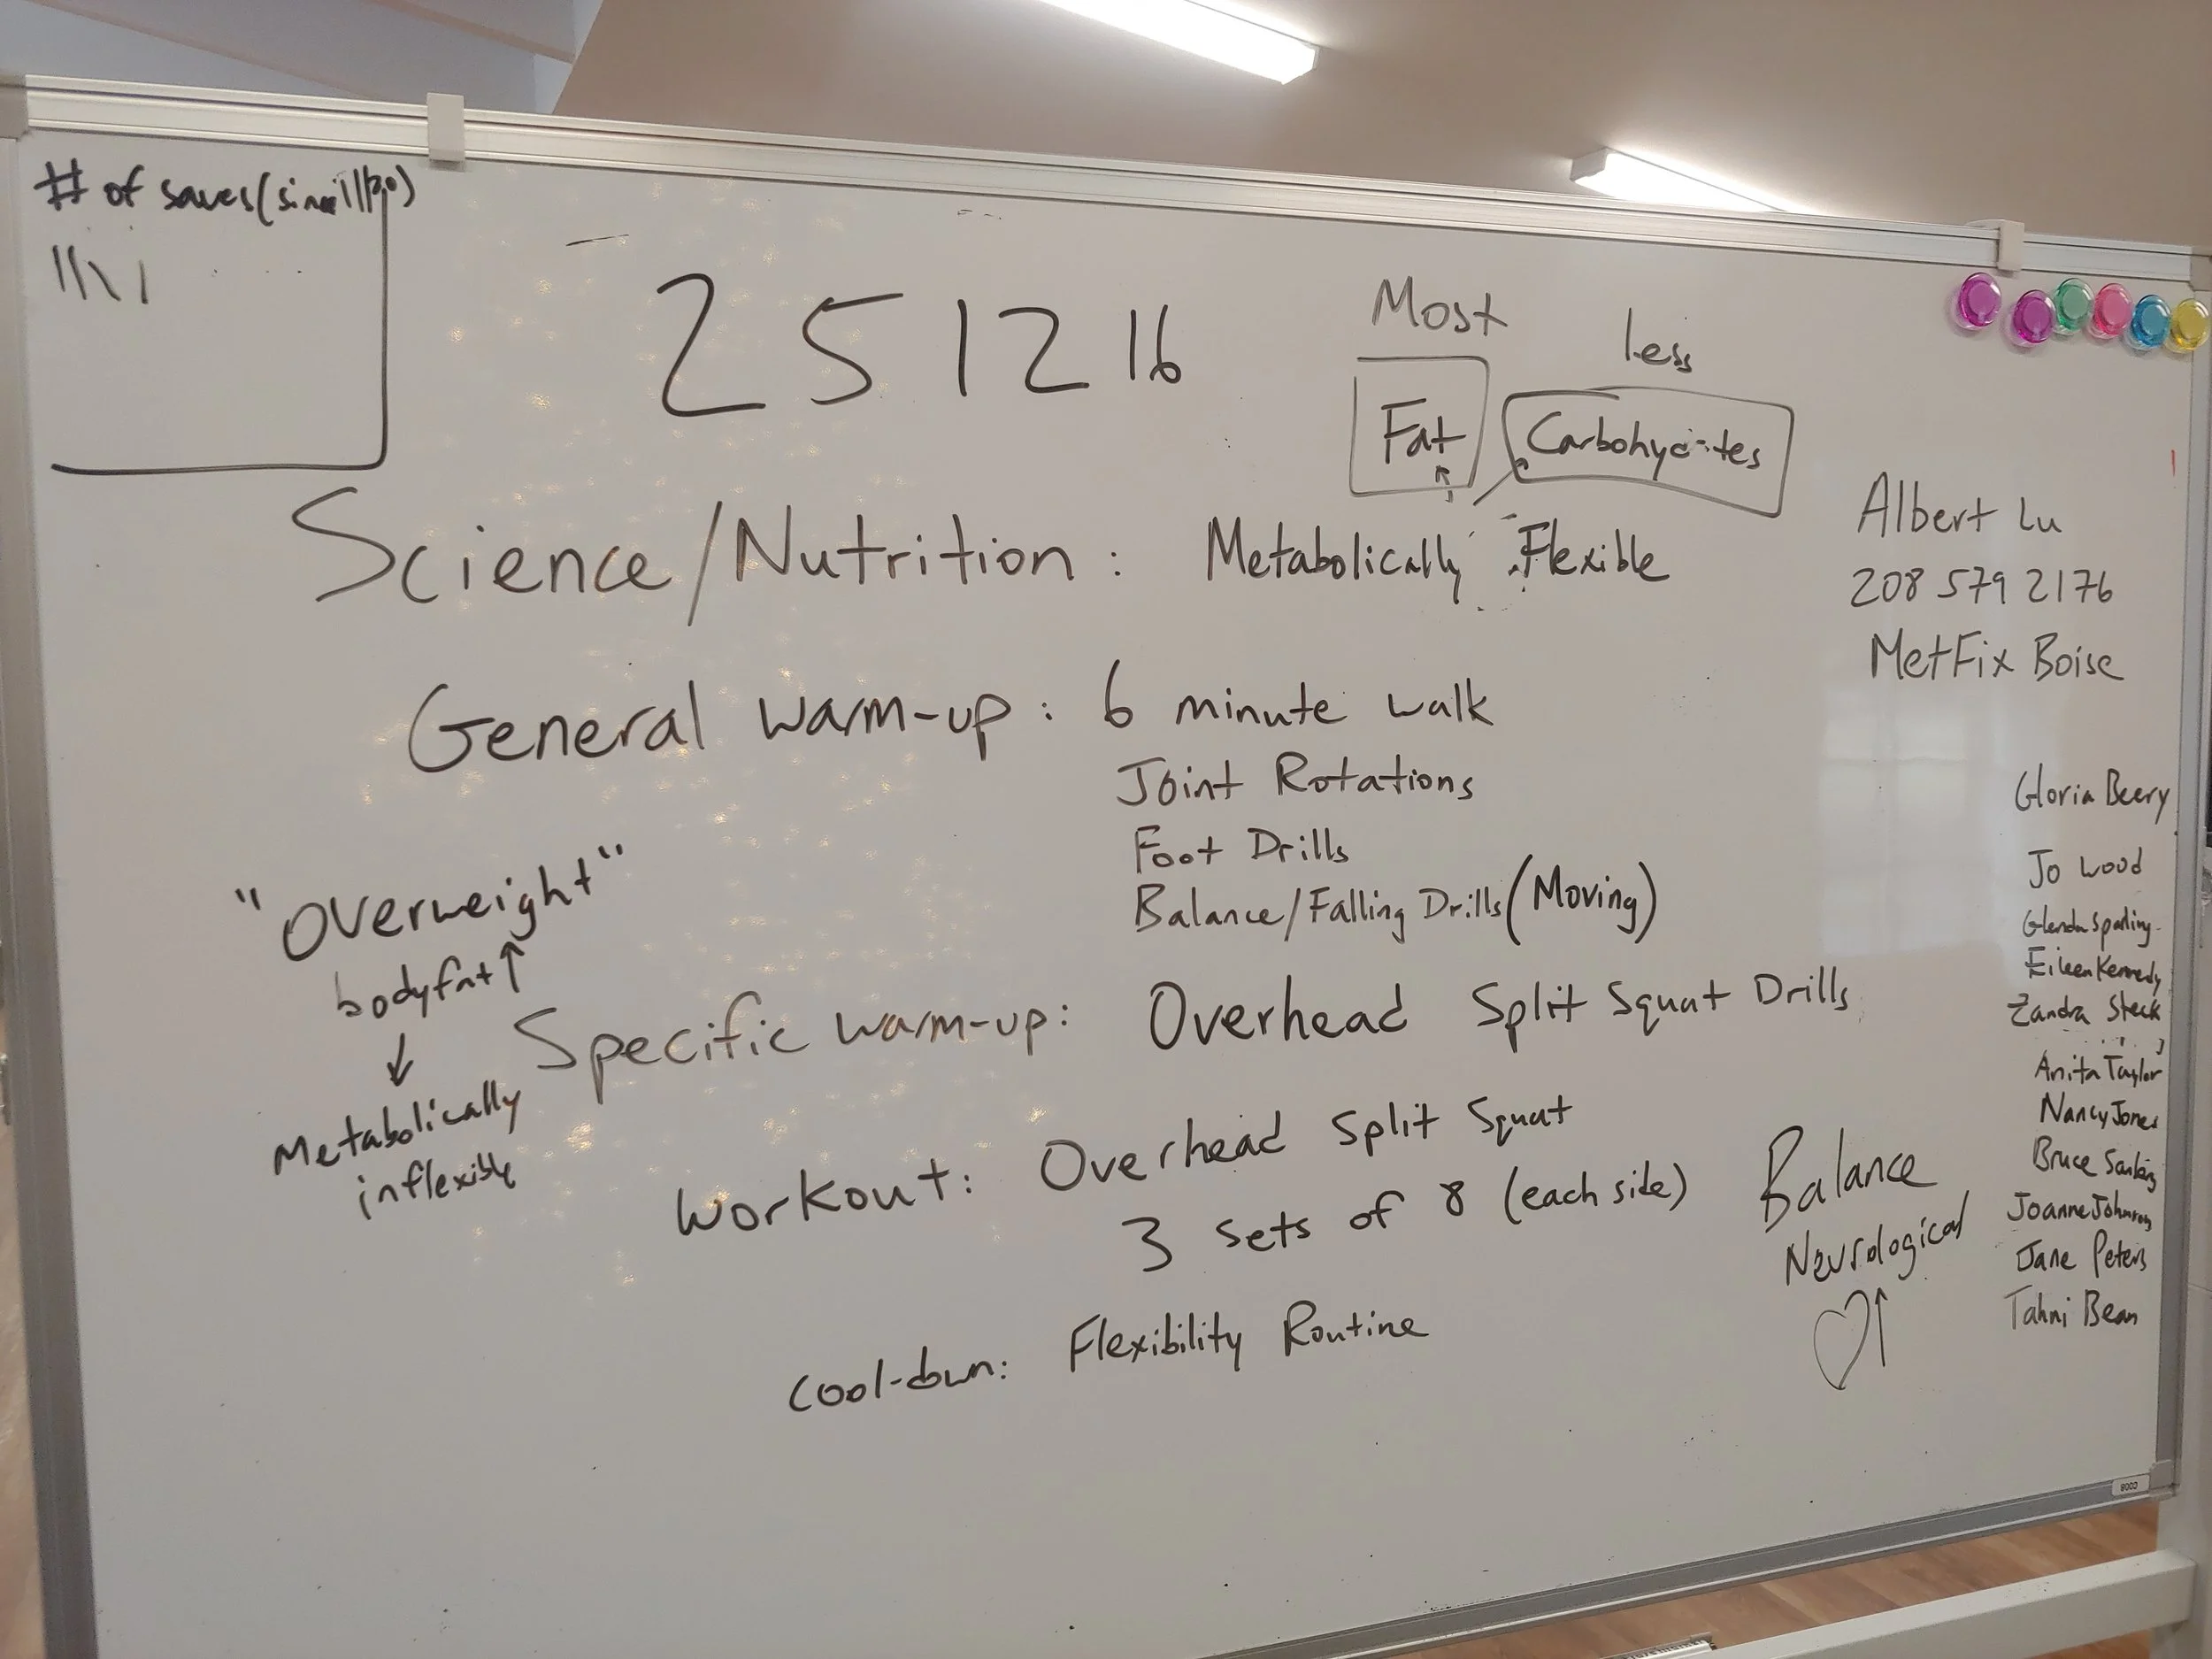 # of saves (since
\\\\ |
25 12 16
Most
less
Fat
Carbohydrates
Science/Nutrition: Metabolically Flexible
Albert Lu
208 579 2176
MetFix Boise
General warm-up: 6 minute walk
Joint Rotations
Foot Drills
Balance/Falling Drills (Moving)
"Overweight"
bodyfat ↑
↓
Metabolically
inflexible
Specific warm-up: Overhead Split Squat Drills
Workout: Overhead Split Squat
3 sets of 8 (each side)
Balance
Neurological
♡↑
cool-down: Flexibility Routine
Gloria Beery
Jo Wood
Glenda Sparling
Eileen Kennedy
Zandra Steck
Anita Taylor
Nancy Jones
Bruce
Joanne Johnson
Jane Peters
Tahni Bean